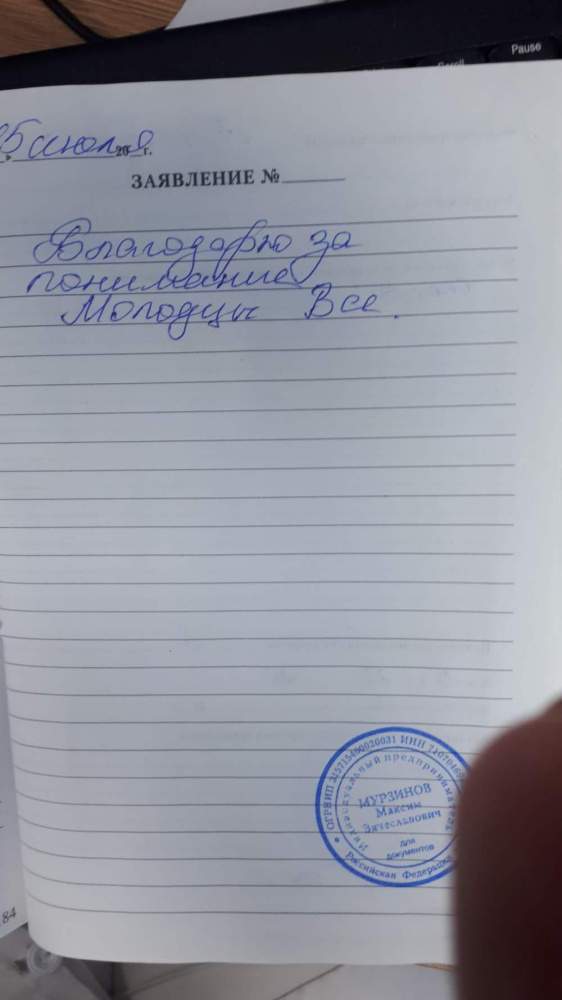 Pause
Scroll
5 июля 20 г.
ЗАЯВЛЕНИЕ №
Благодарю за
понимание
Молодцы Все.
ОГРНИП 315715400020031 ИНН
Индивидуальный предприниматель
МУРЗИНОВ
Максим
Вячеславович
для
документов
Российская Федерация
84